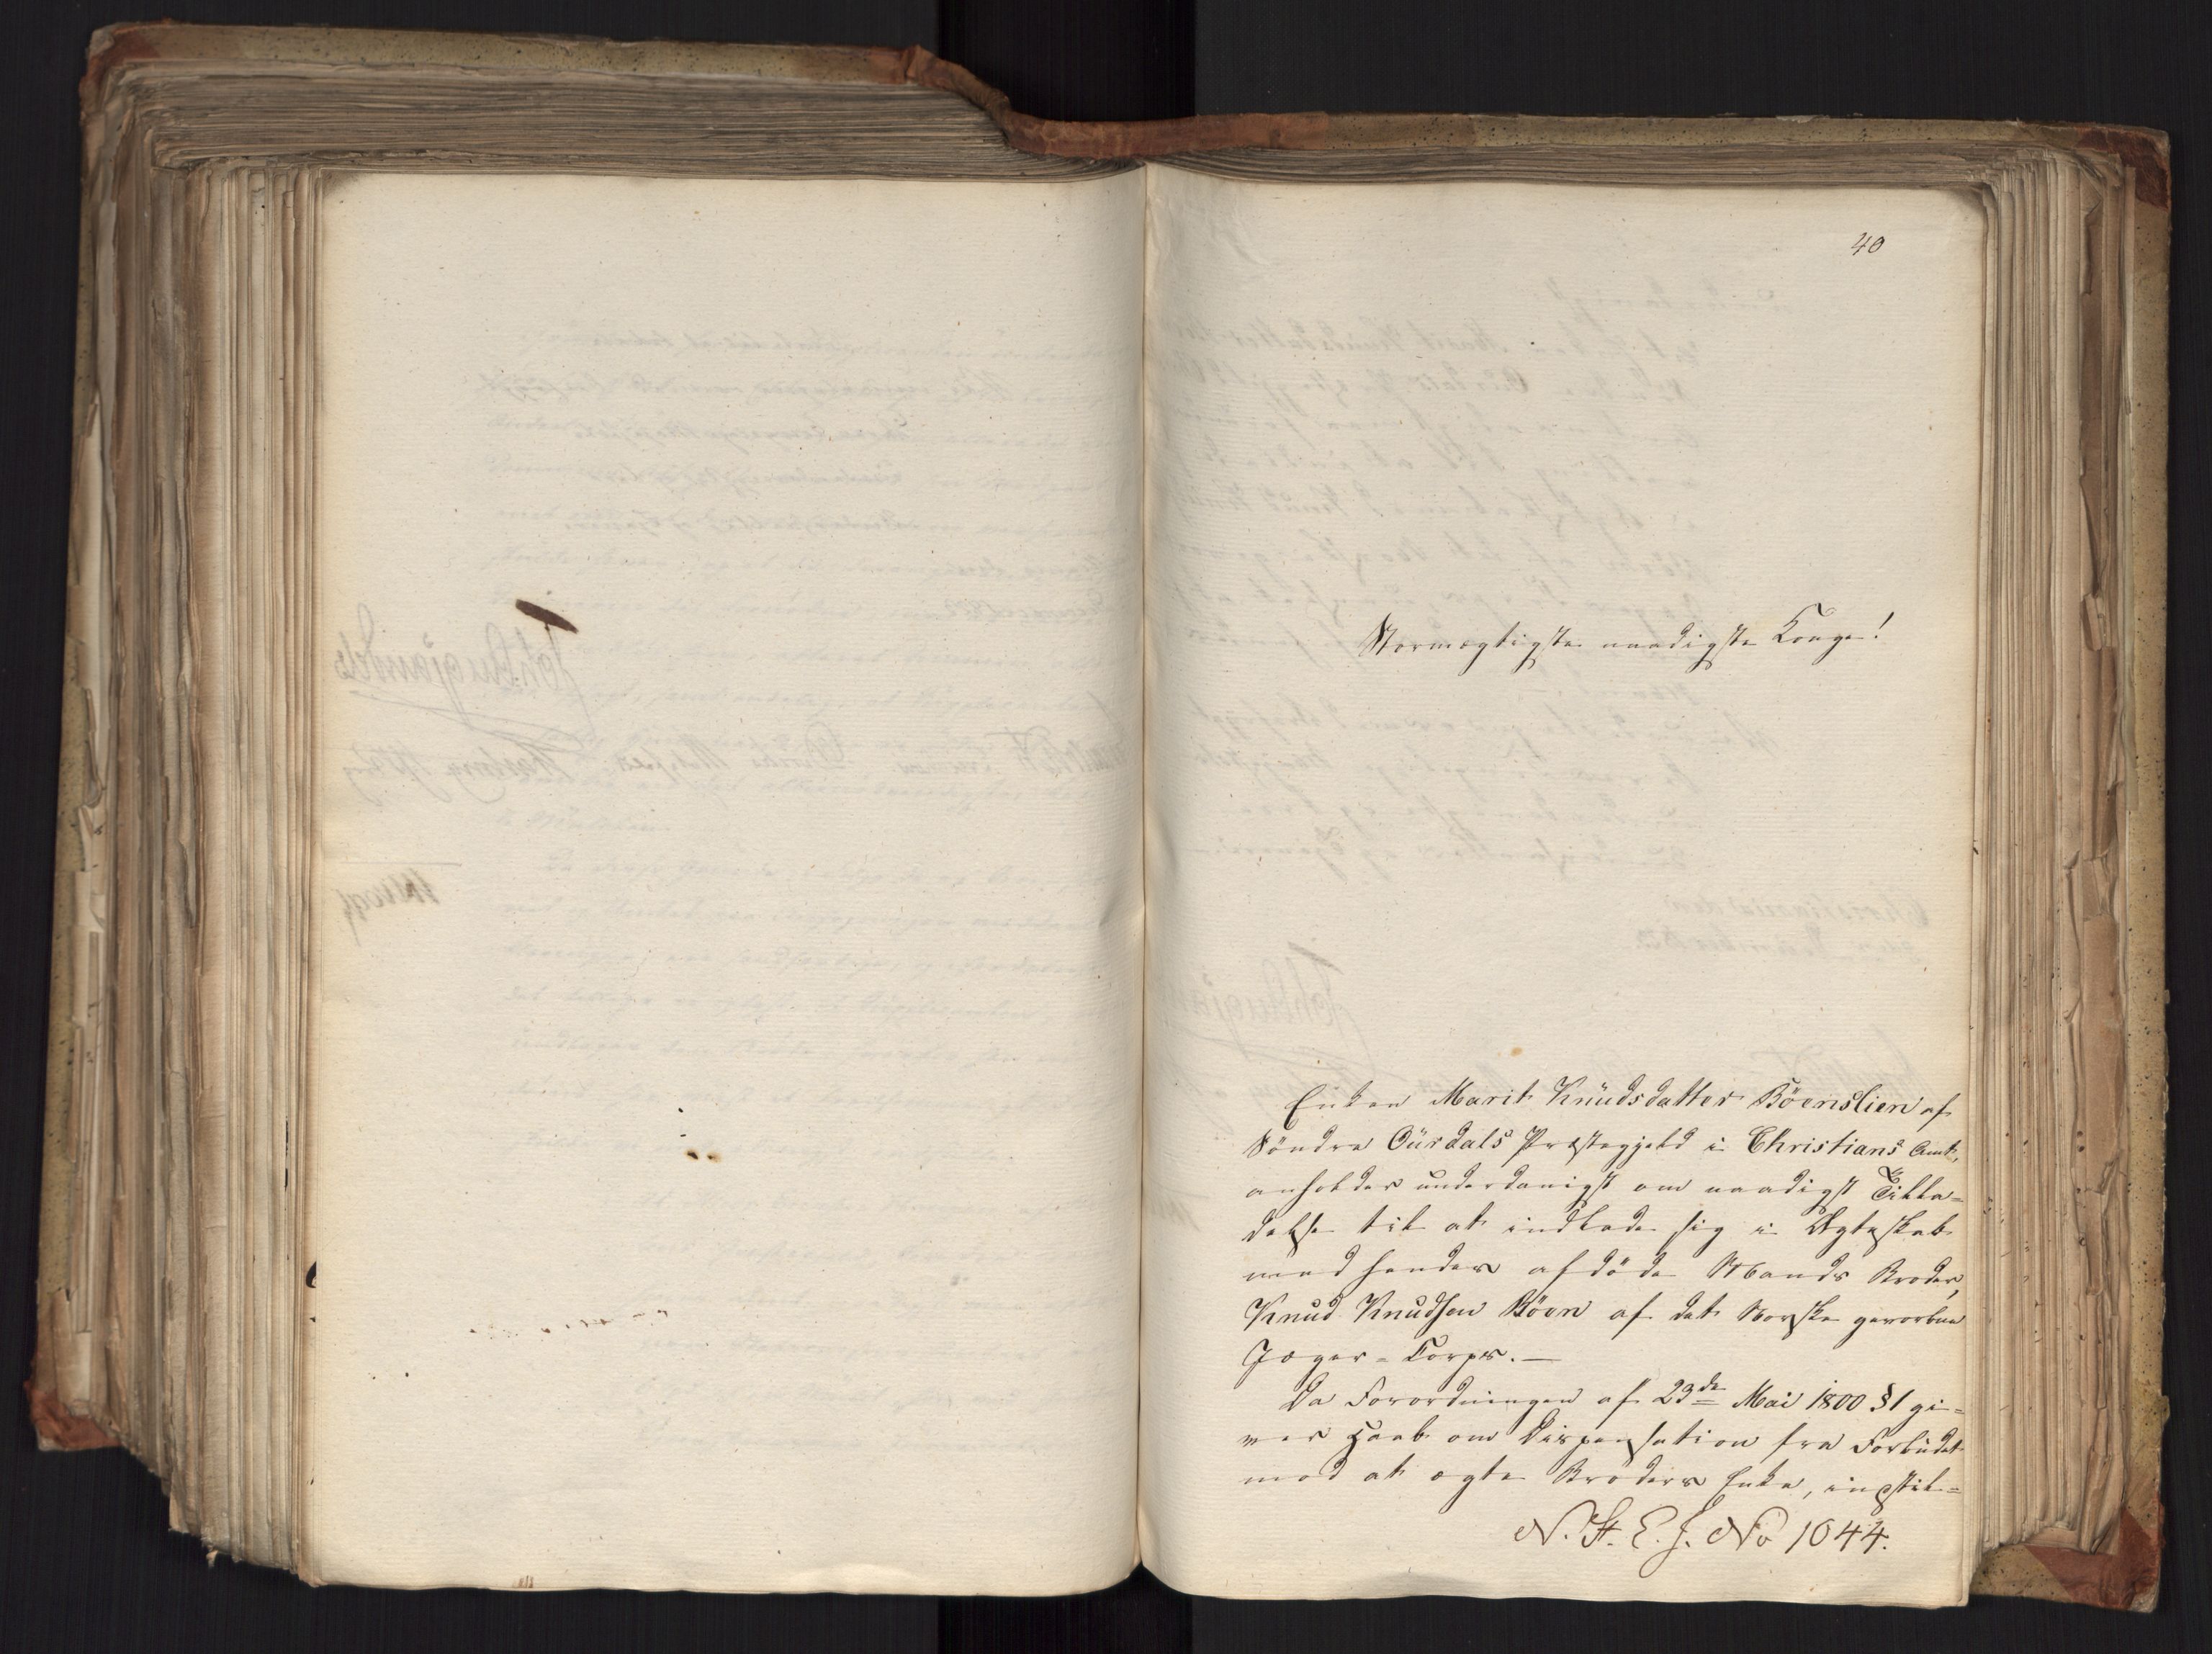 40
Stormægtigste naadigste Konge!
Enken Marit Knüdsdatter Böenslien af
Söndre Oürdals Præstegjeld i Christians Amt,
anholder underdanigst om naadigst Tilla-
delse til at indlade sig i Ægteskab
med hendes afdöde Mands Broder,
Knud Knudsen Böen af det Norske gevorbne
Jæger-Corps.—
Da Forordningen af 23de Mai 1800 §1 gi-
ver Haab om Dispensation fra Forbudet
mod at ægte Broders Enke, instil-
N. St. E. J. No 1044.